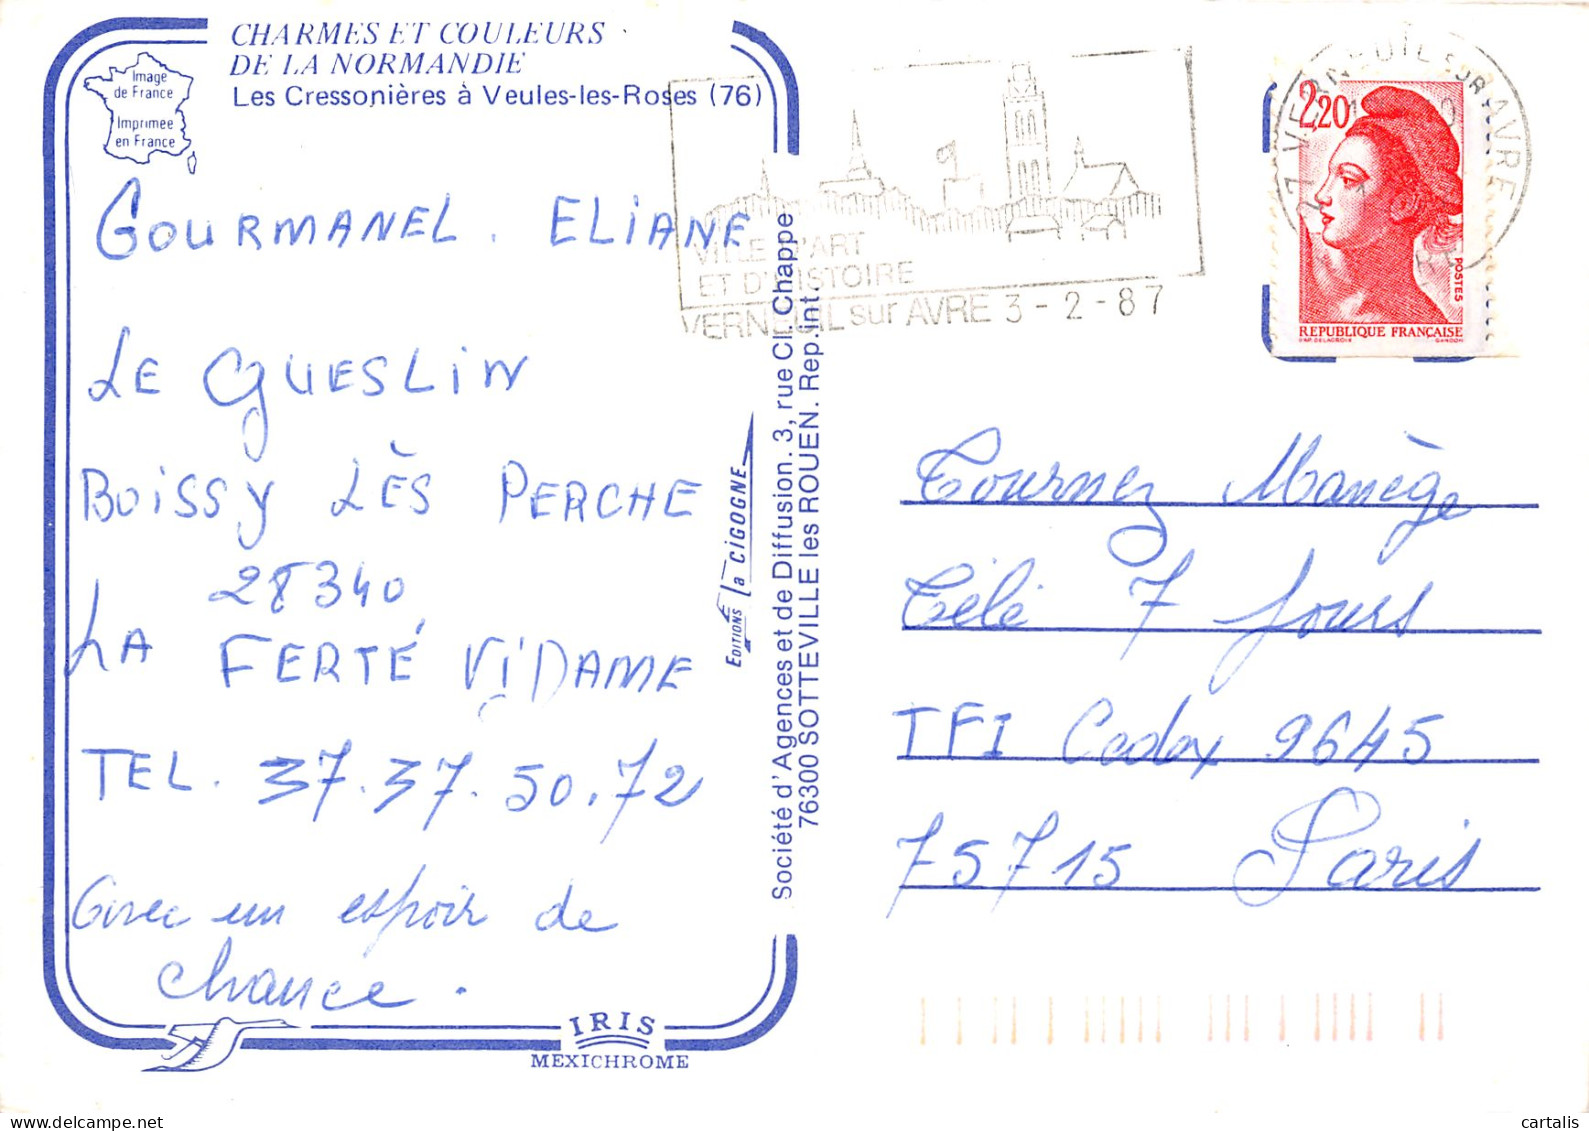 CHARMES ET COULEURS
DE LA NORMANDIE
Les Cressonières à Veules-les-Roses (76)
Image
de France
Imprimée
en France
GOURMANEL. ELIANE
LE GUESLIN
BOISSY LÈS PERCHE
28340
LA FERTÉ VIDAME
TEL. 37.37.50.72
Avec un espoir de
chance.
IRIS
MEXICHROME
EDITIONS la CIGOGNE
Société d'Agences et de Diffusion. 3, rue Cl. Chappe
76300 SOTTEVILLE les ROUEN. Rep. Int.
VILLE D'ART
ET D'HISTOIRE
VERNEUIL sur AVRE 3-2-87
27 VERNEUIL SUR AVRE
2,20
POSTES
REPUBLIQUE FRANÇAISE
D'AP. DELACROIX GANDON
Tournez Manège
Télé 7 Jours
TFI Cedex 9645
75715 Paris
delcampe.net
cartalis